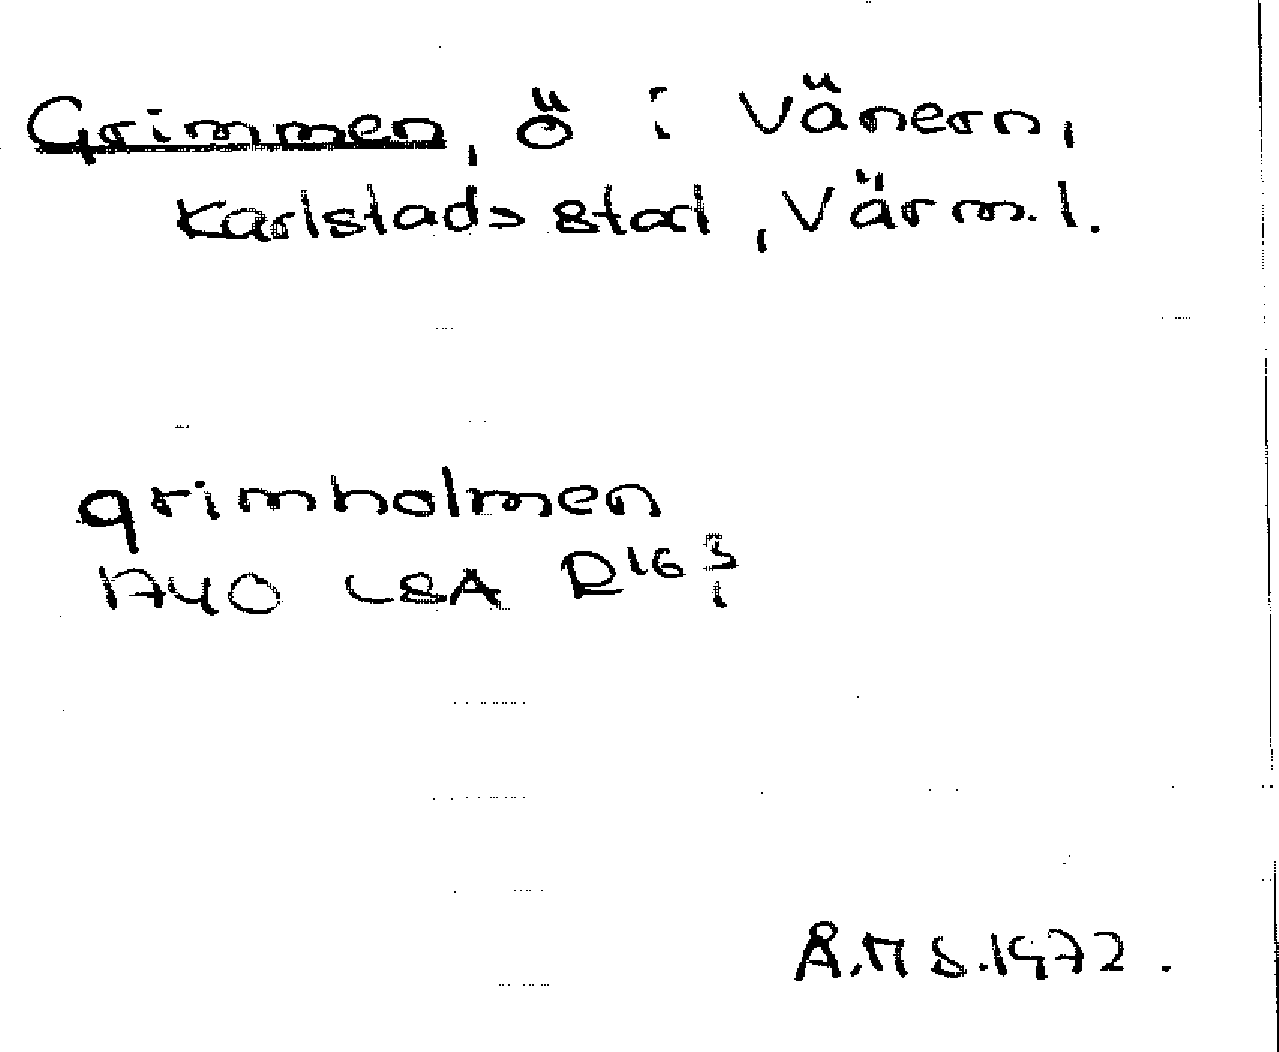 Grimmen, ö i Vänern,
Karlstads stad, Värml.
grimholmen
1740 LSA R16 3:1
Å.M S.1972.